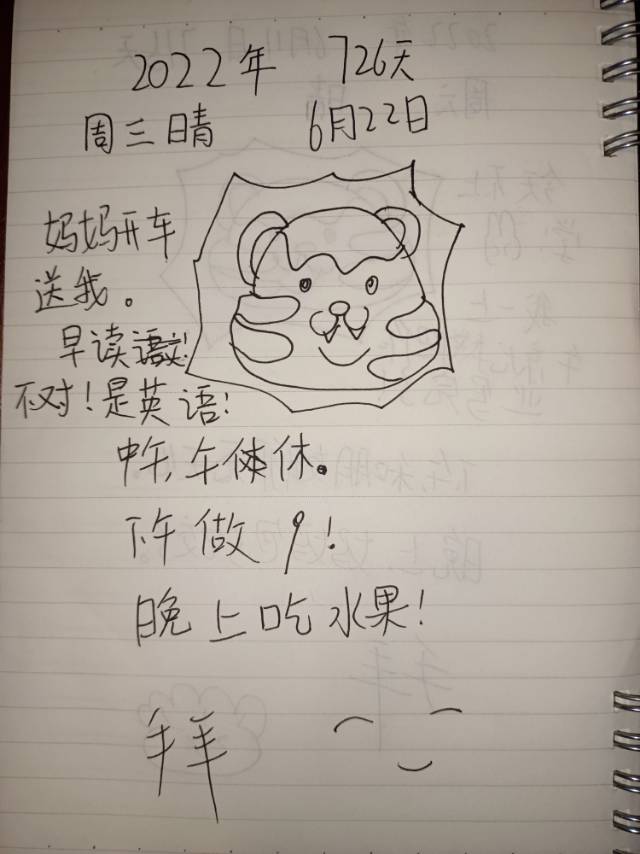 2022年 726天
周三晴 6月22日
妈妈开车
送我。
早读语文!
不对!是英语!
中午,午休。
下午做9!
晚上吃水果!
拜